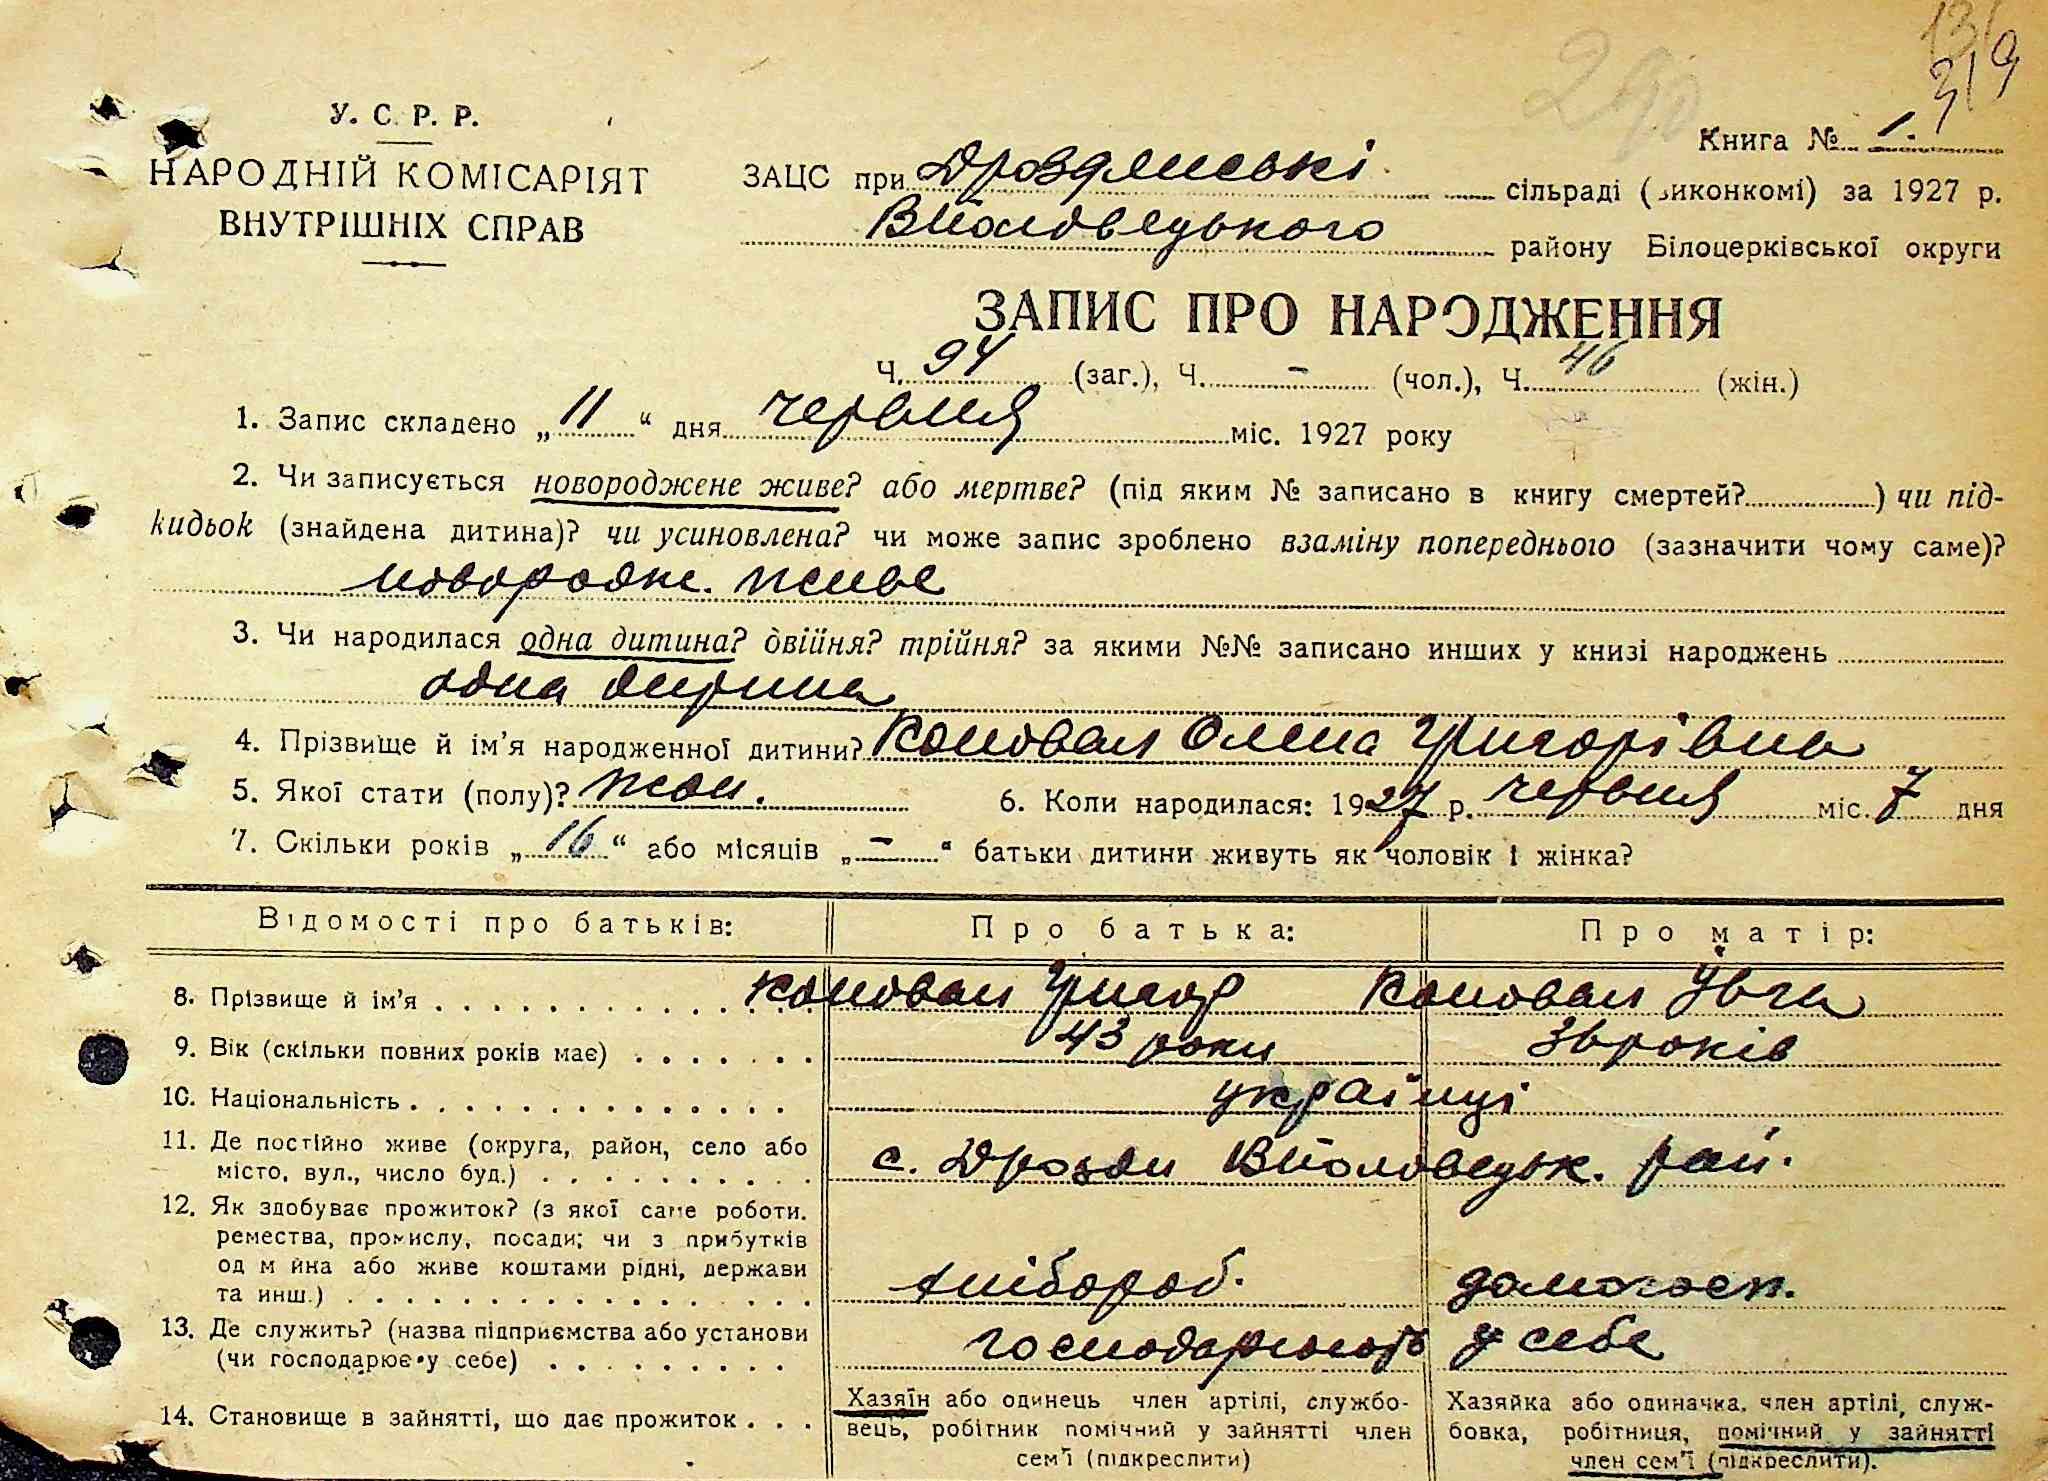 290
319
У. С. Р. Р.
НАРОДНІЙ КОМІСАРІЯТ
ВНУТРІШНІХ СПРАВ
Книга № 1.
ЗАЦС при Дроздянські сільраді (виконкомі) за 1927 р.
Вполовецького району Білоцерківської округи
ЗАПИС ПРО НАРОДЖЕННЯ
Ч. 94 (заг.), Ч. – (чол.), Ч. 46 (жін.)
1. Запис складено „11“ дня червня міс. 1927 року
2. Чи записується новороджене живе? або мертве? (під яким № записано в книгу смертей? ) чи під-
кидьок (знайдена дитина)? чи усиновлена? чи може запис зроблено взаміну попереднього (зазначити чому саме)?
новородж. живе
3. Чи народилася одна дитина? двійня? трійня? за якими №№ записано инших у книзі народжень
одна дитина
4. Прізвище й ім'я народженної дитини? Коновал Олена Григорівна
5. Якої стати (полу)? жон. 6. Коли народилася: 1927 р. червня міс. 7 дня
7. Скільки років „16“ або місяців „–“ батьки дитини живуть як чоловік і жінка?
Відомості про батьків: Про батька: Про матір:
8. Прізвище й ім'я . . . . Коновал Григор Коновал Увга
9. Вік (скільки повних років має) . . . . 43 роки 36 років
10. Національність . . . . українці
11. Де постійно живе (округа, район, село або
місто, вул., число буд.) . . . . с. Дрозди Вполовецьк. рай.
12. Як здобуває прожиток? (з якої саме роботи,
ремества, промислу, посади; чи з прибутків
од майна або живе коштами рідні, держави
та инш.) . . . . хлібороб. домогосп.
13. Де служить? (назва підприємства або установи
(чи господарює у себе) . . . . господарюють у себе
14. Становище в зайнятті, що дає прожиток . . .
Хазяїн або одинець член артілі, службо-
вець, робітник помічний у зайнятті член
сем'ї (підкреслити)
Хазяйка або одиначка, член артілі, служ-
бовка, робітниця, помічний у зайнятті
член сем'ї (підкреслити).